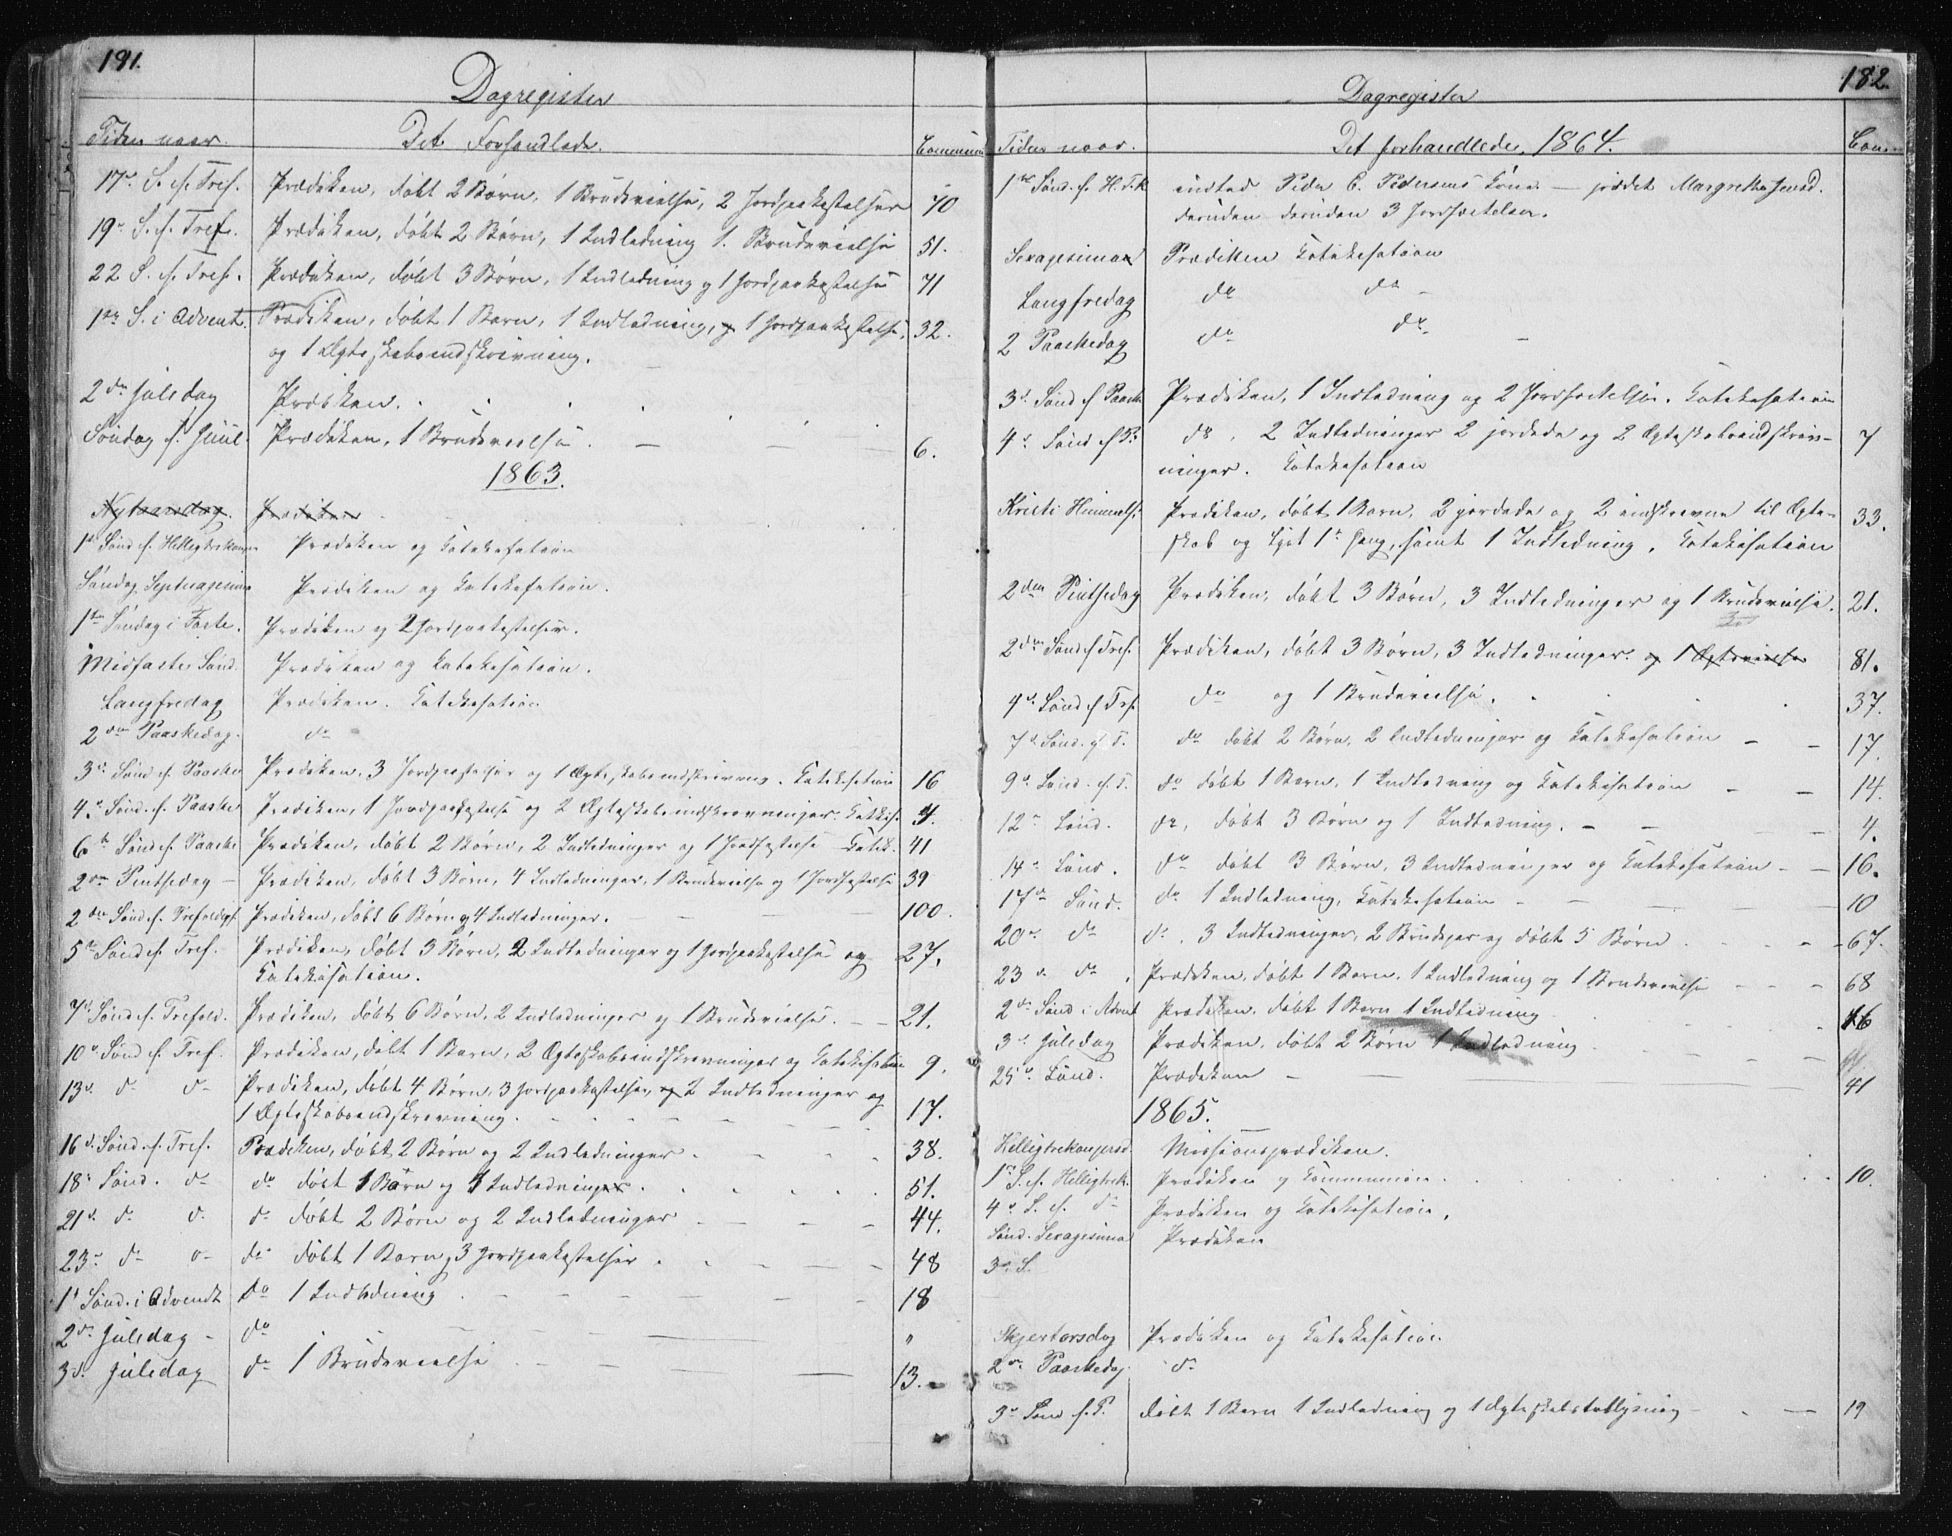 191.
Dagregister
Tiden naar. Det Forhandlede. Commun
17de S. e. Tref. Prædiken, døbt 2 Børn, 1 Brudevielse, 2 Jordpaakastelser 70
19e S. e. Tref. Prædiken, døbt 2 Børn, 1 Indledning 1. Brudevielse 51.
22 S. e. Tref. Prædiken, døbt 3 Børn, 1 Indledning og 1 Jordpaakastelse 71
1ste S. i Advent. Prædiken, døbt 1 Barn, 1 Indledning, og 1 Jordpaakastelse, 32.
og 1 Ægteskabsindskrivning.
2den Juledag Prædiken.
Søndag e. Juul. Prædiken, 1 Brudevielse 6.
1863.
Nytaarsdag. Prædiken
1ste Sønd. e. Helligtrekonger Prædiken og Catekesation
Søndag Septuagesima Prædiken og Catekesation.
1ste Søndag i Faste. Prædiken og 2 Jordpaakastelser.
Midfaste Sønd. Prædiken og Catekesation.
Langfredag Prædiken. Catekesation
2den Paaskedag. do
3de Sønd. e. Paaske Prædiken, 3 Jordpaastelser og 1 Ægteskabsindskrivning. Catekesation 16
4de Sønd. e. Paaske Prædiken, 1 Jordpaakastelse og 2 Ægteskabsindskrivninger. Catekis. 4.
6te Sønd. e. Paaske Prædiken, døbt 2 Børn, 2 Indledninger og 1 Jordfæstelse Catek. 41
2den Pintsedag Prædiken, døbt 3 Børn, 4 Indledninger, 1 Brudevielse og 1 Jordfæstelse 39
2den Sønd. e. Trefoldigh. Prædiken, døbt 6 Børn og 4 Indledninger. 100.
5te Sønd. e. Tref. Prædiken, døbt 3 Børn, 2 Indledninger og 1 Jordpaakastelse og 27.
Catekisation.
7de Sønd. e. Trefold. Prædiken, døbt 6 Børn, 2 Indledninger og 1 Brudevielse. 21.
10de Sønd. e. Tref. Prædiken, døbt 1 Barn, 2 Ægteskabsindskrivninger og Catekisation 9.
13de do do Prædiken, døbt 4 Børn, 3 Jordpaakastelser, og 2 Indledninger og
1 Ægteskabsindskrivning. 17.
16de Sønd. e. Tref. Prædiken, døbt 2 Børn og 2 Indledninger. 38.
18de Sønd. do do døbt 1 Barn og 1 Indledninger. 51.
21de do do do døbt 2 Børn og 2 Indledninger 44.
23de do do do døbt 1 Barn, 3 Jordpaakastelser 48
1ste Sønd. i Advendt do 1 Indledning 18
2den Juledag do "
3de Juledag do 1 Brudevielse 13.
182.
Dagregister
Tiden naar. Det forhandlede, 1864. Com.
1ste Sønd. e. H. T. K. indled Peder C. Pedersens Kone — jordet Margrethe Jensd.
desuden desuden 3 Jordfæstelser.
Sexagesima Prædiken Catekesation
Langfredag do do
2 Paaskedag do do
3de Sønd e Paaske Prædiken, 1 Indledning og 2 Jordfæstelser. Catekesation
4de Sønd e P. do, 2 Indledninger 2 jordede og 2 Ægteskabsindskriv- 7
ninger. Catekesation
Kristi Himmelf. Prædiken, døbt 1 Barn, 2 jordede og 2 indskrevne til Ægte- 33.
skab og lyst 1ste Gang, samt 1 Indledning, Catekesation
2den Pintsedag Prædiken, døbt 3 Børn, 3 Indledninger og 1 Brudevielse. 21.
2den Sønd e Tref. Prædiken, døbt 3 Børn, 3 Indledninger. og 1 Ægtevielse 81.
4de Sønd e Tref. do og 1 Brudevielse. 37.
7de Sønd. e. T. do døbt 2 Børn, 2 Indledninger og Catekesation 17.
9de Sønd. e. T. do døbt 1 Barn, 1 Indledning og Catekesation 14.
12te Sønd. do, døbt 3 Børn og 1 Indledning. 4.
14de Sønd. do døbt 3 Børn, 3 Indledninger og Catekesation 16.
17de Sønd. do 1 Indledning, Catekesation 10
20de do do. 3 Indledninger, 2 Brudepar og døbt 5 Børn 67.
23de do, Prædiken, døbt 1 Barn, 1 Indledning og 1 Brudevielse 68
2den Sønd. i Advent Prædiken, døbt 1 Barn 1 Indledning 16
3de Juledag Prædiken, døbt 2 Børn 1 Indledning
25de Sønd. Prædeken 41
1865.
Helligtrekongersd. Missionsprædiken.
1ste S. e. Helligtrek. Prædiken og Communion. 10.
4de S. e. do Prædiken og Catekisation.
Sønd. Sexagesima Prædiken
3de S.
Skjertorsdag Prædiken og Catekisation.
2den Paaskedag. do
3de Sønd e. P. døbt 1 Barn 1 Indledning og 1 Ægteskabstillysning 19